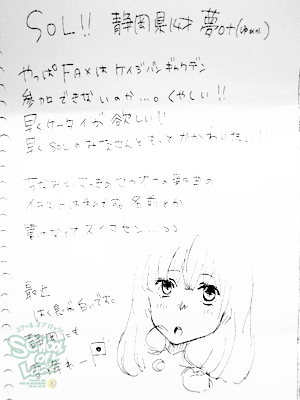 SOL!! 静岡県 14才 夢ot(
やっぱFAXはケイジバンギャクデン
参加できないのか...。くやしい!!
早くケータイが欲しい!!
早くSOLのみなさんともっとかかわりたい!!
ちなみに、さっきの
イラスト、は 名前とか
書けなくてスイマセン...
最近
はく息が白いです。
静岡にも
雪降れー
スクール オブ ロック!
School
Of
Lock!